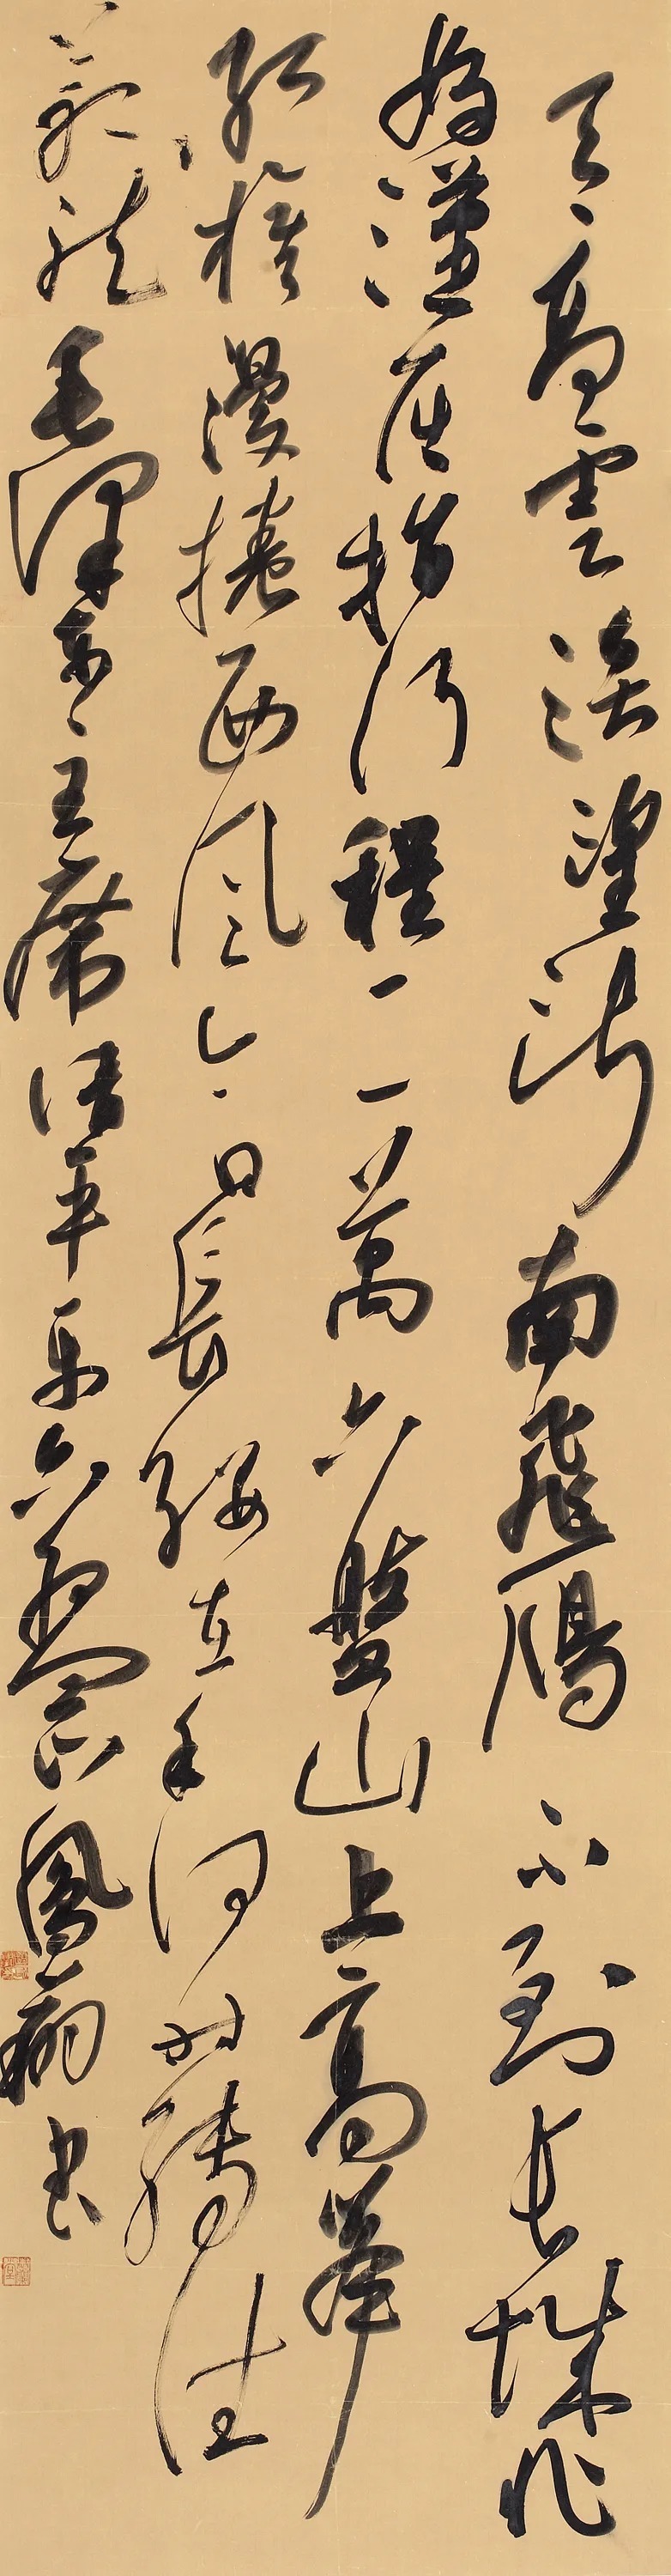 天高雲淡望斷南飛鴈不到長城非
好漢屈指行程二萬六盤山上高峯
紅旗漫捲西風今日長纓在手何時縛住
蒼龍 毛澤東主席清平樂六盤山 鳳書